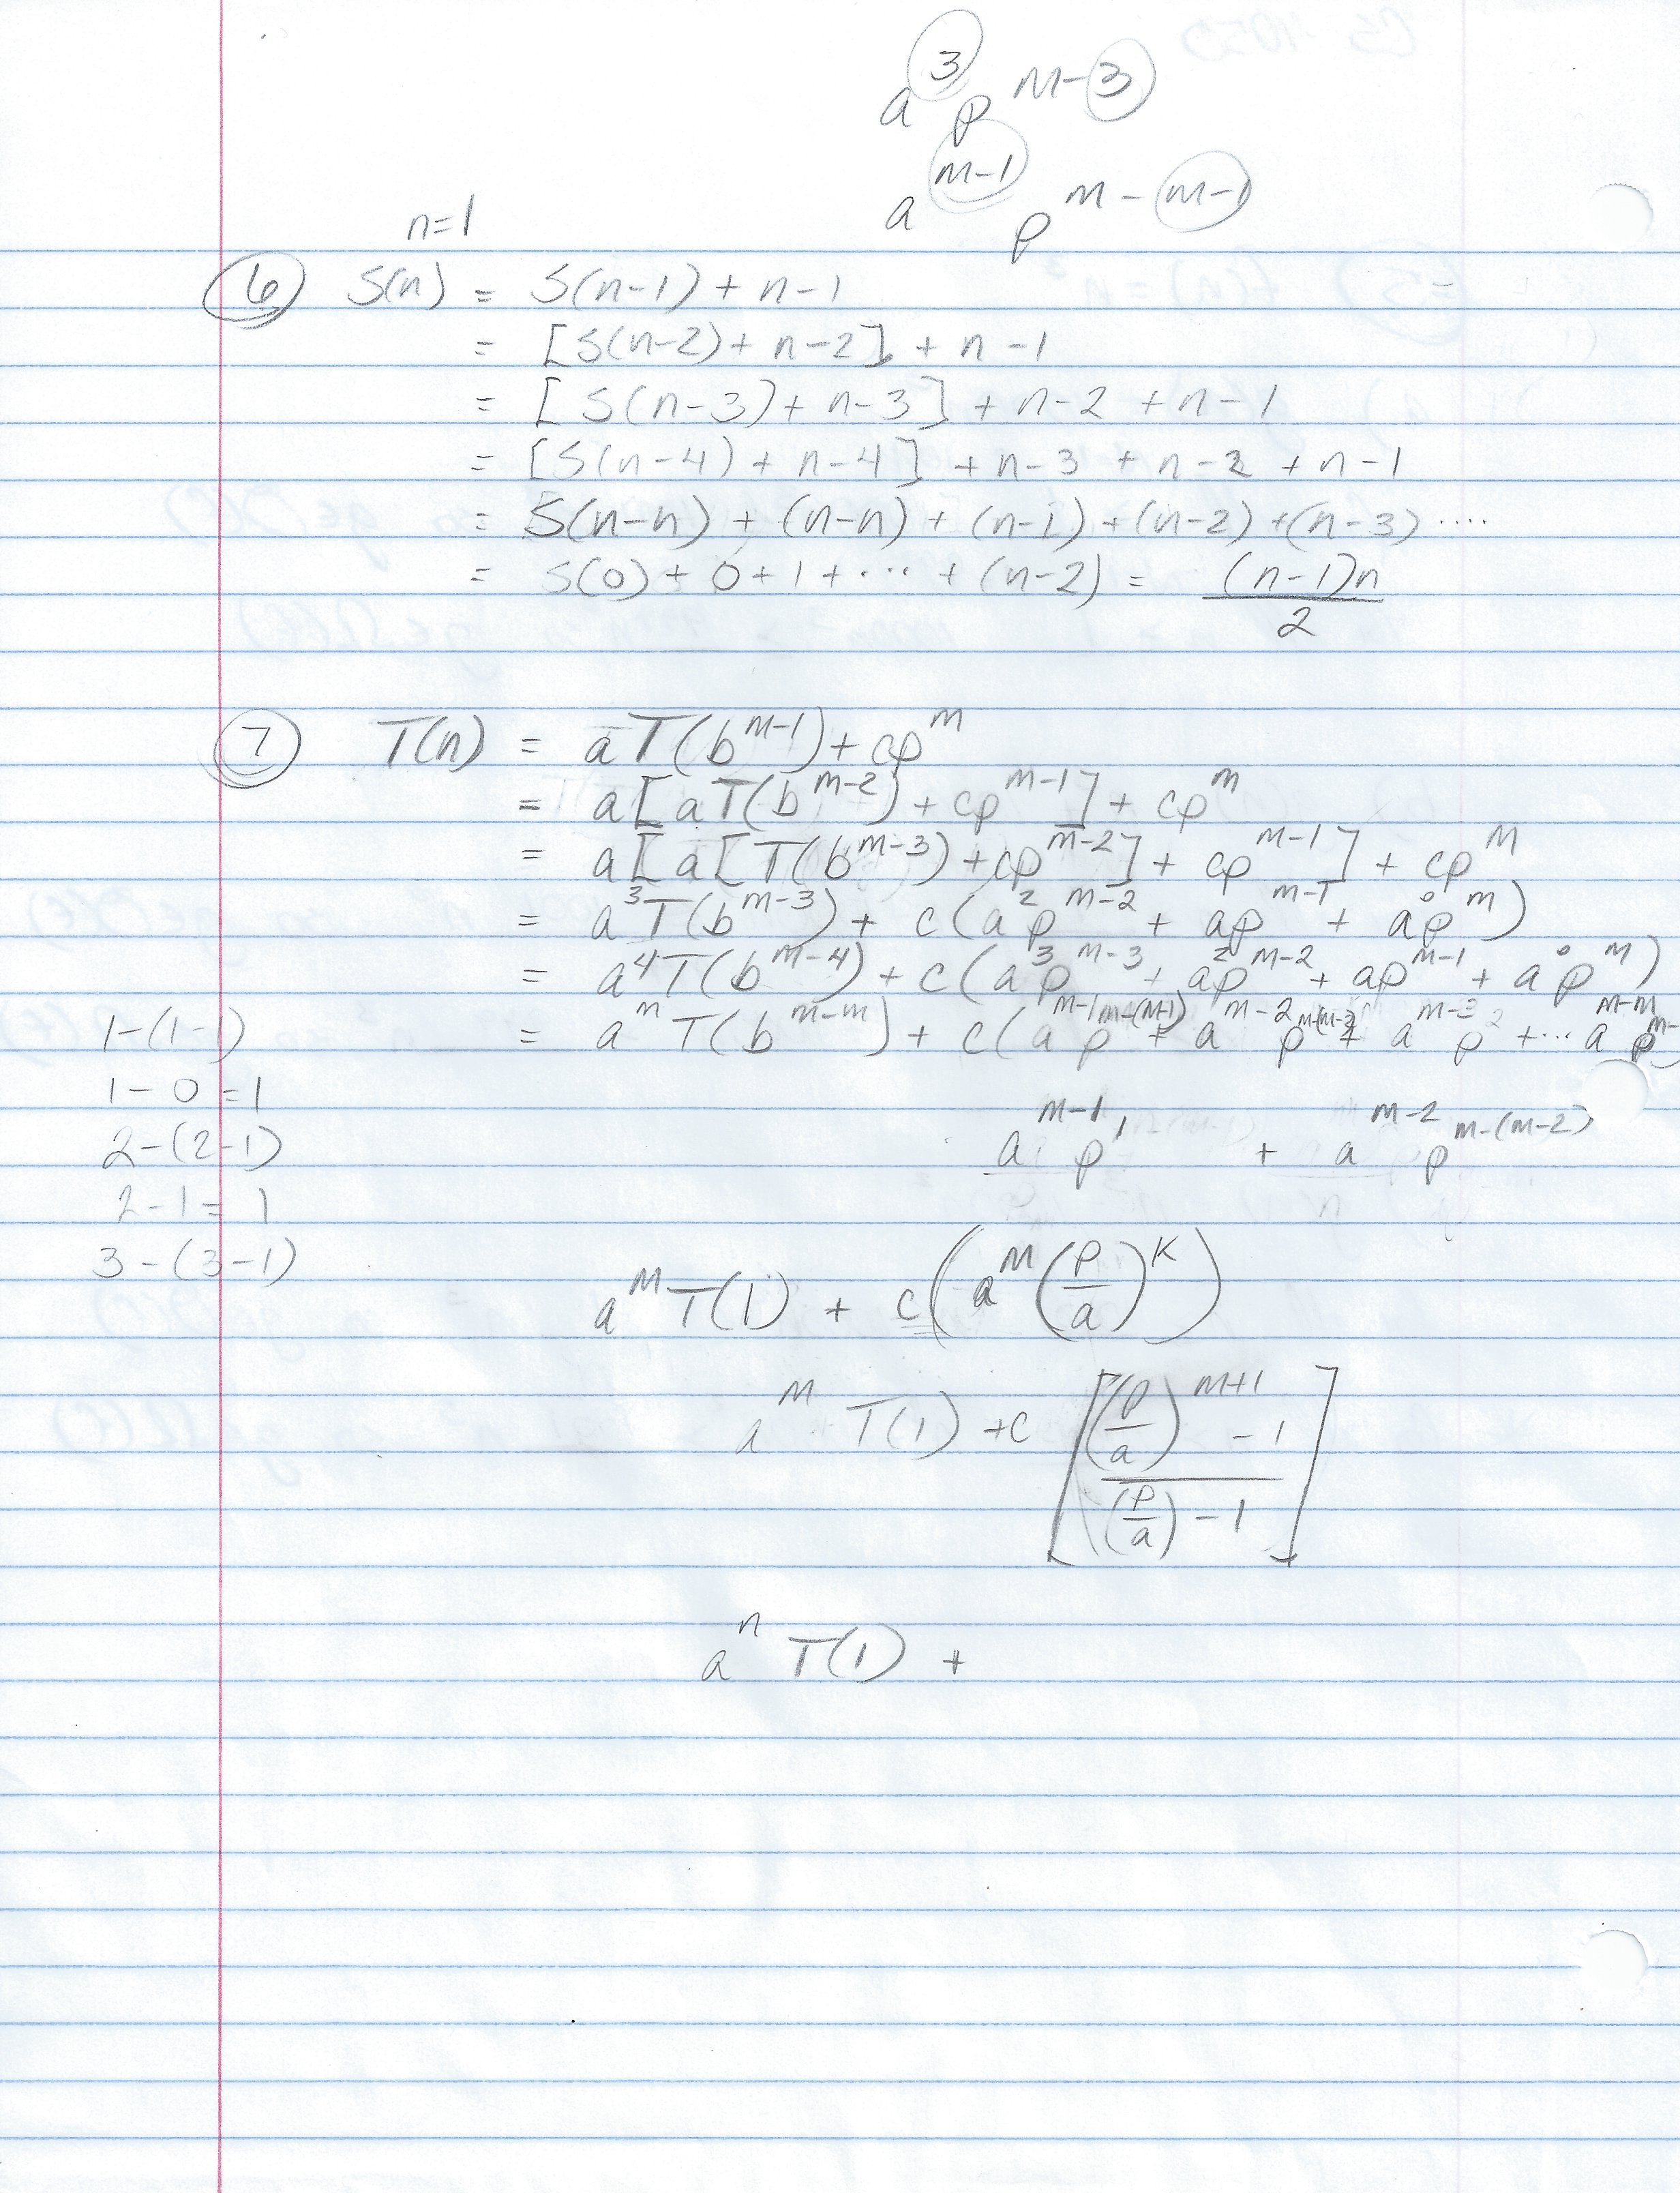 a^3 p^{m-3}
a^{m-1} p^{m-(m-1)}
n=1
6 S(n) = S(n-1) + n-1
= [S(n-2) + n-2] + n-1
= [S(n-3) + n-3] + n-2 + n-1
= [S(n-4) + n-4] + n-3 + n-2 + n-1
= S(n-n) + (n-n) + (n-1) + (n-2) + (n-3) ....
= S(0) + 0 + 1 + ... + (n-2) = (n-1)n / 2
7 T(n) = aT(b^{m-1}) + cp^m
= a[aT(b^{m-2}) + cp^{m-1}] + cp^m
= a[a[T(b^{m-3}) + cp^{m-2}] + cp^{m-1}] + cp^m
= a^3 T(b^{m-3}) + c(a^2 p^{m-2} + ap^{m-1} + a^0 p^m)
= a^4 T(b^{m-4}) + c(a^3 p^{m-3} + a^2 p^{m-2} + ap^{m-1} + a^0 p^m)
= a^m T(b^{m-m}) + c(a^{m-1} p^{m-(m-1)} + a^{m-2} p^{m-(m-2)} + a^{m-3} p^2 + ... a^{m-m} p^{m-
1-(1-1)
1-0=1
2-(2-1)
2-1=1
3-(3-1)
a^{m-1} p^1 + a^{m-2} p^{m-(m-2)}
a^m T(1) + c(a^m (p/a)^k)
a^m T(1) + c [((p/a)^{m+1} - 1) / ((p/a) - 1)]
a^n T(1) +